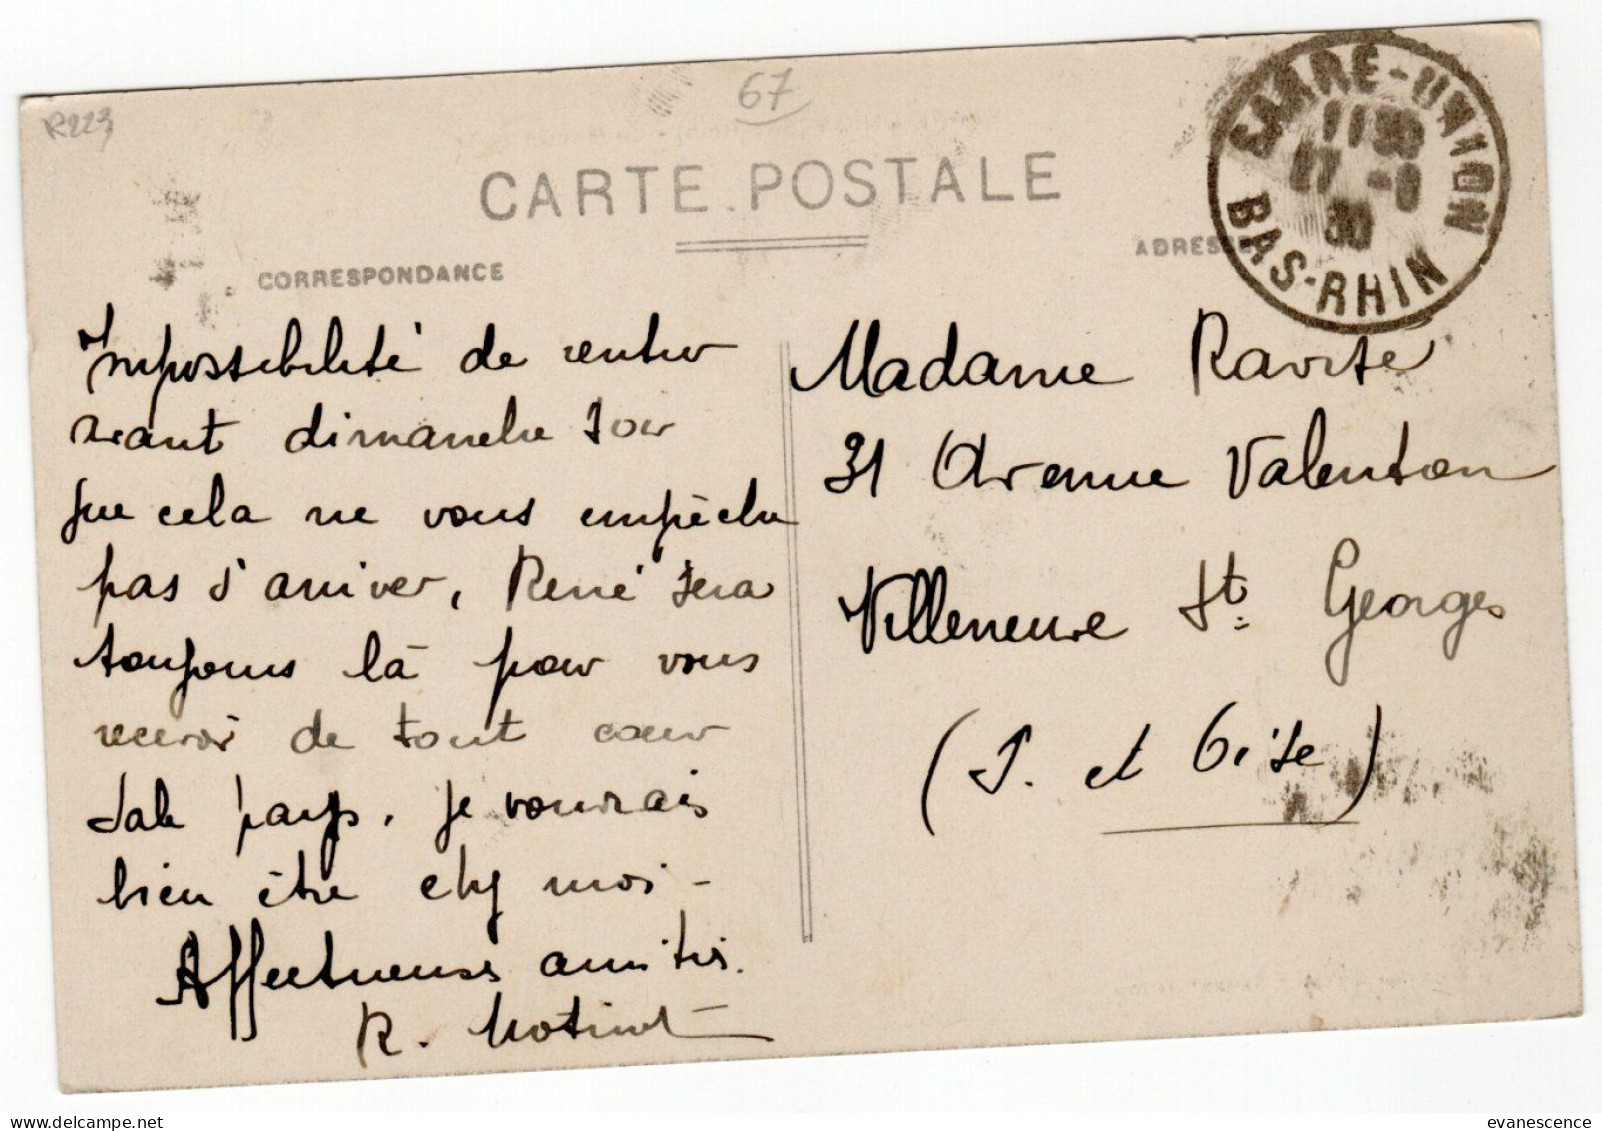 R223
67
CARTE POSTALE
CORRESPONDANCE
ADRESSE
SARRE-UNION
11 30
17 -9
30
BAS-RHIN
Impossibilité de rentrer
avant dimanche soir
que cela ne vous empêche
pas d'arriver, René sera
toujours là pour vous
recevoir de tout cœur
Sale pays, je voudrais
bien être chez moi -
Affectueuses amitiés.
R.
Madame Ravité
31 Avenue Valenton
Villeneuve St. Georges
(S. et Oise)
evanescence